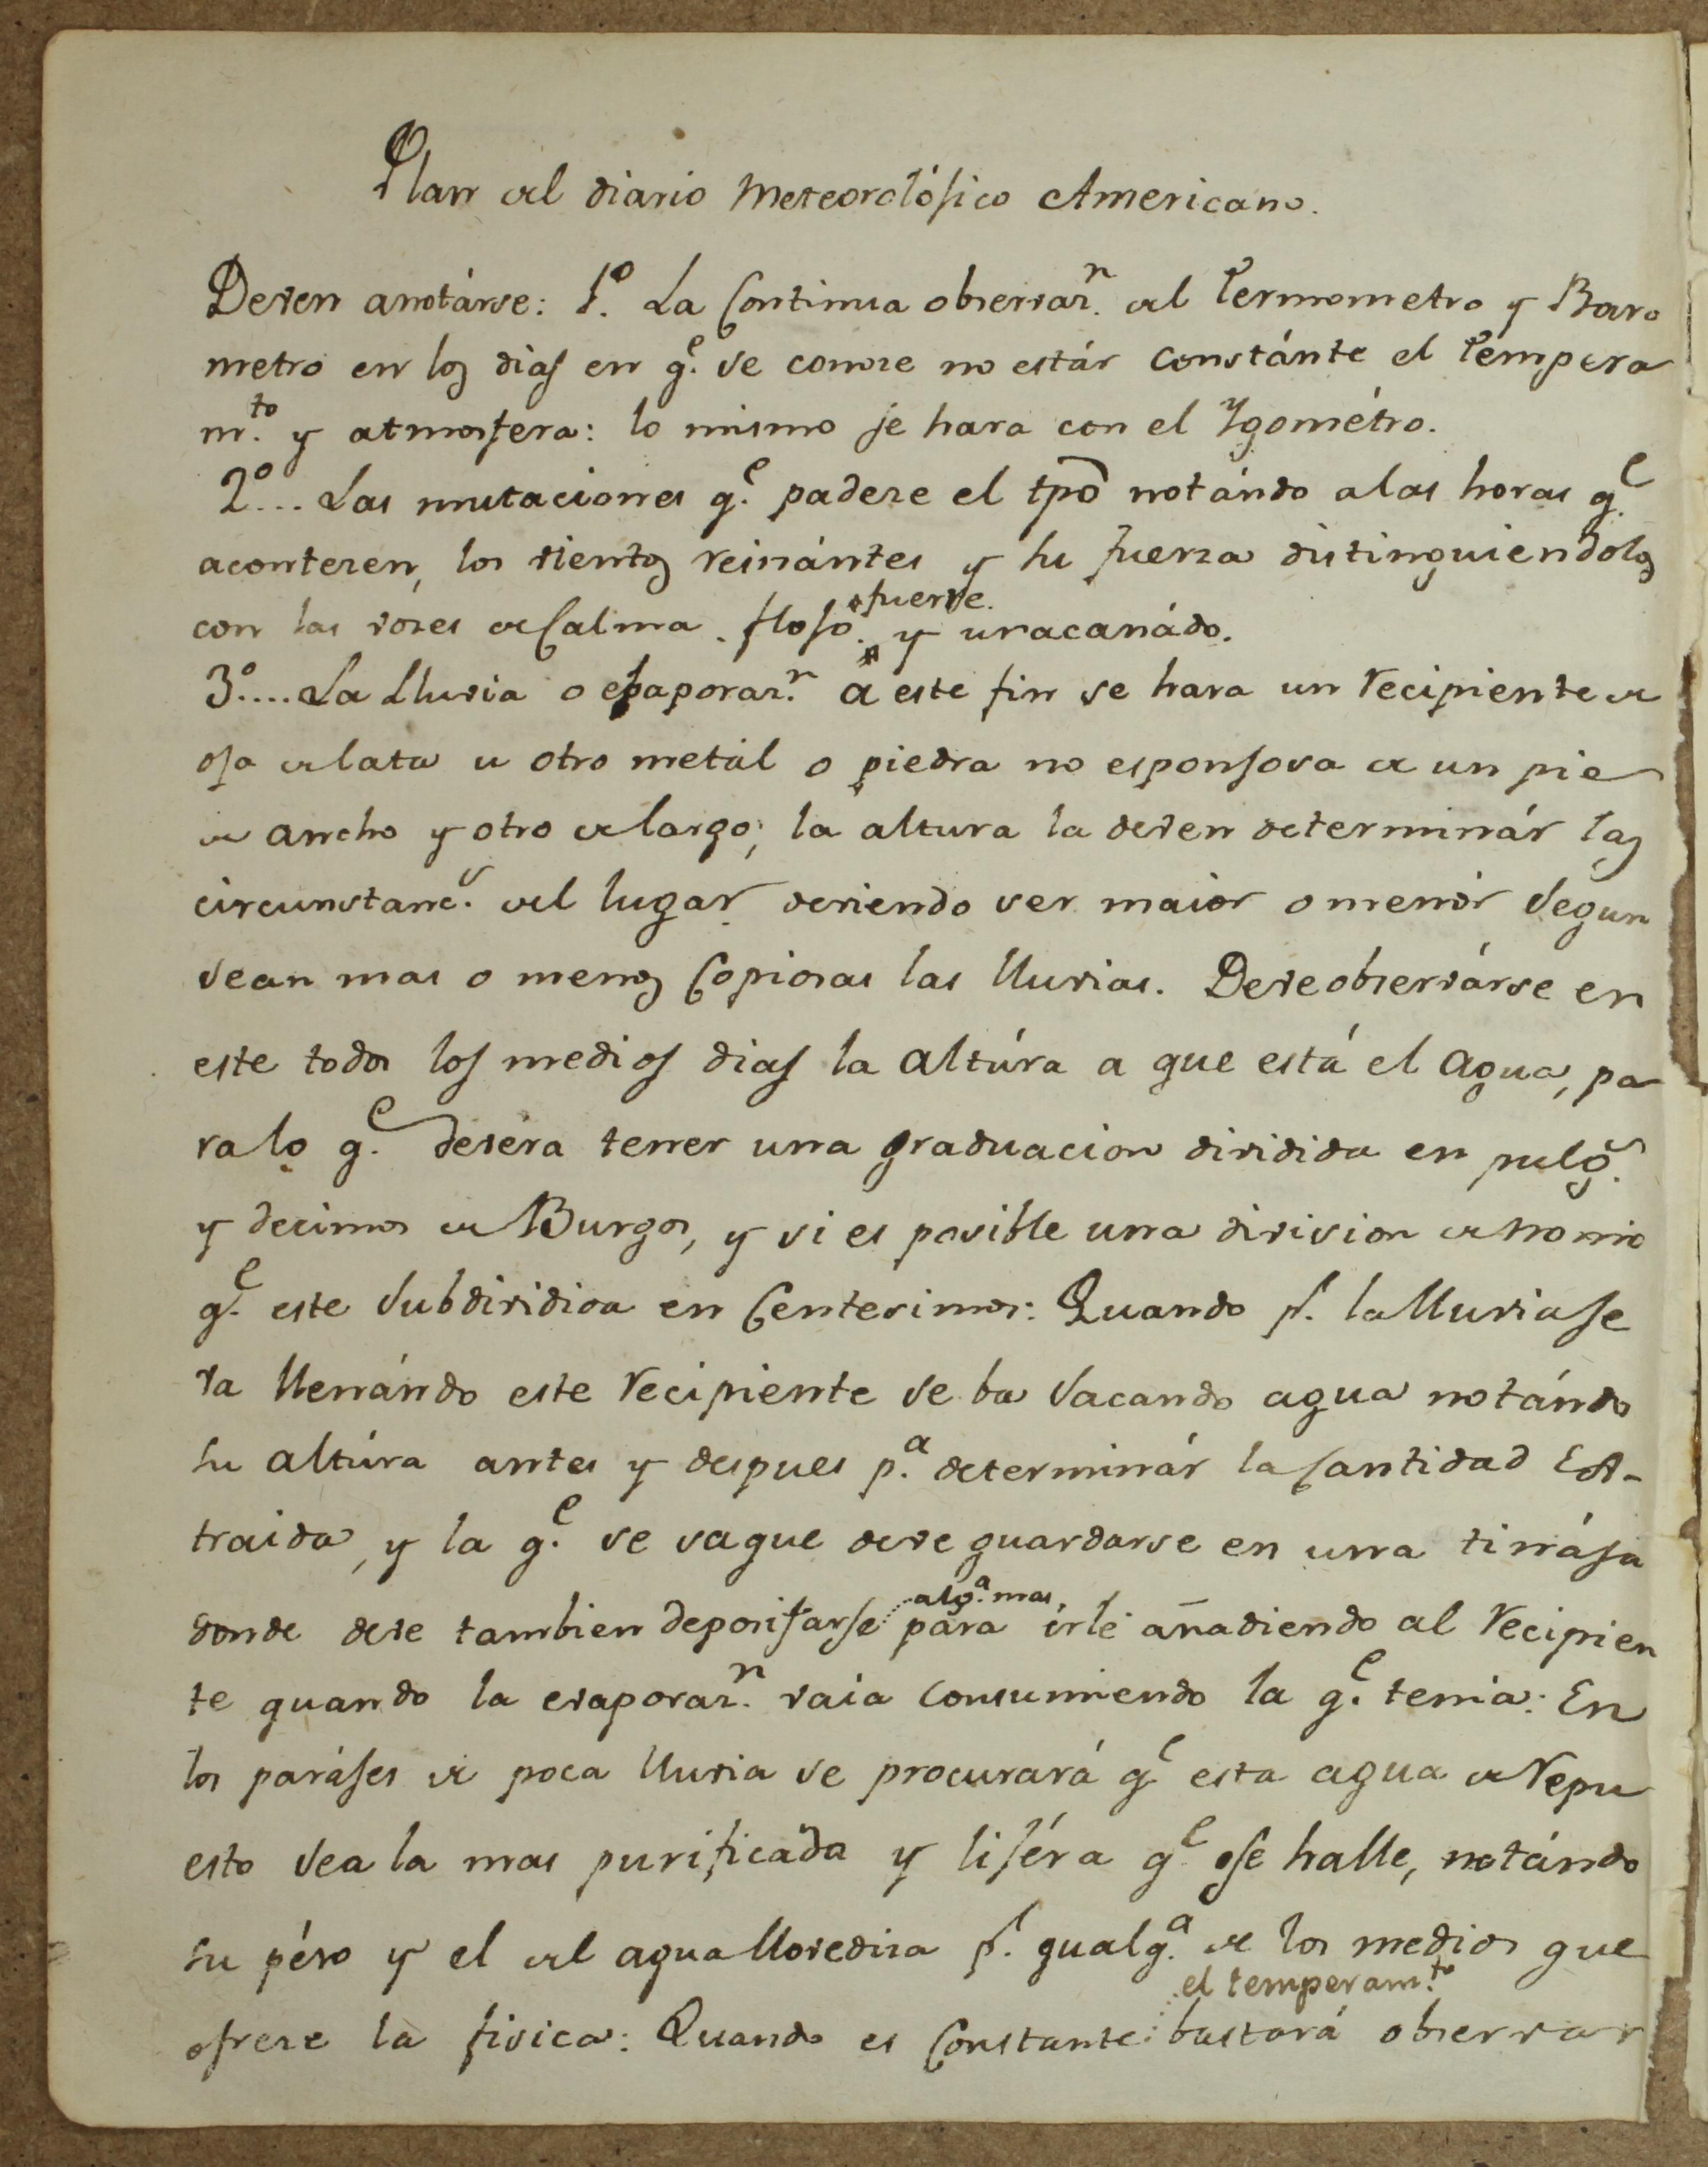 Plan del diario Meteorolójico Americano.
Deven anotárse: 1º. La Continua observazn. del Termometro y Baro
metro en los dias en q.e se conoze no estár constánte el Tempera
m.to y atmosfera: lo mismo se hara con el Ygométro.
2º... Las mutaciones q.e padeze el tpō notándo a las horas q.e
acontezen, los vientos reinántes y su fuerza distinguiendolos
con las vozes de Calma. flojo. fuerte. y uracanádo.
3º.... La Lluvia o evaporaz.n a este fin se hara un recipiente de
oja de lata u otro metál o piedra no esponjosa de un pie
de ancho y otro de largo; la altura la deven determinár las
circunstanc.s del lugar deviendo ser maior o menór segun
sean mas o menos Copiosas las lluvias. Deve observárse en
este todos los medios dias la altúra a que está el agua, pa
ra lo q.e devéra tener una graduacion dividida en pulg.s
y decimos de Burgos, y si es posible una division de nonio
q.e este subdividida en Centesimos: Quando p.r la lluvia se
va llenándo este recipiente se ba sacando agua notándo
su altúra antes y despues p.a determinár la Cantidad Es-
traida, y la q.e se saque deve guardarse en una tinája
donde deve tambien depositarse alg.a mas, para irle añadiendo al recipien
te quando la evaporaz.n vaia consumiendo la q.e tenia: En
los parájes de poca lluvia se procurará q.e esta agua de repu
esto sea la mas purificáda y lijéra q.e se halle, notándo
su péso y el del agua llovediza p.r qualq.a de los medios que
ofreze la fisica: Quando es Constante el temperam.to bastará observar